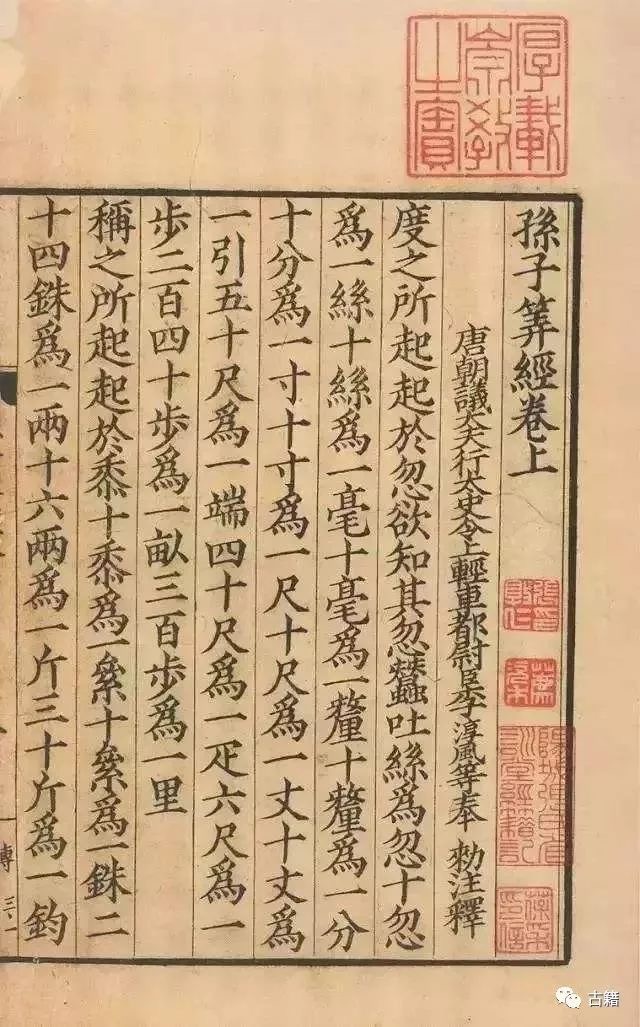 厚載
崇教
之寶
孫子筭經卷上
唐朝議大夫行太史令上輕車都尉臣李淳風等奉 勑注釋
度之所起起於忽欲知其忽蠶吐絲爲忽十忽
爲一絲十絲爲一毫十毫爲一釐十釐爲一分
十分爲一寸十寸爲一尺十尺爲一丈十丈爲
一引五十尺爲一端四十尺爲一疋六尺爲一
歩二百四十歩爲一畝三百歩爲一里
稱之所起起於黍十黍爲一絫十絫爲一銖二
十四銖爲一兩十六兩爲一斤三十斤爲一鈞
陽城張氏省
訓堂經籍記
古籍